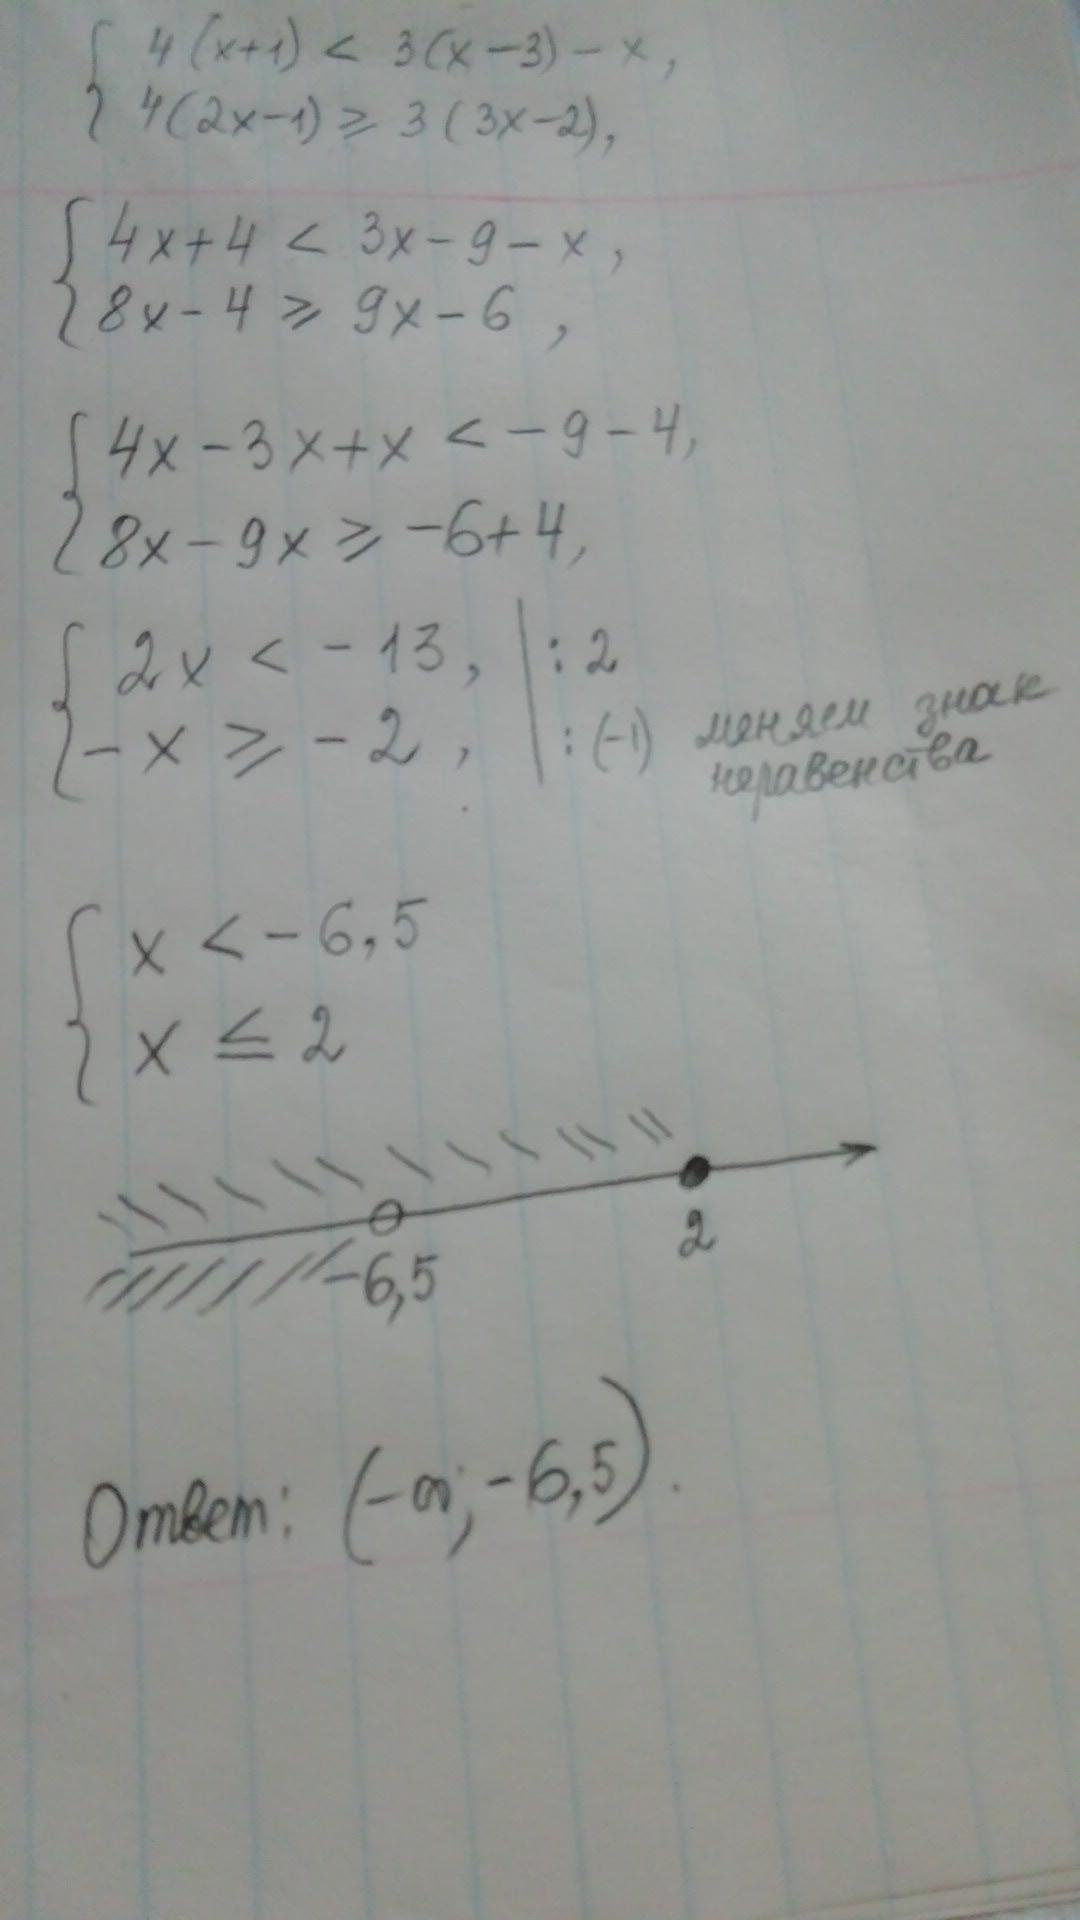 { 4(x+1) < 3(x-3) - x,
4(2x-1) ⩾ 3(3x-2),
{ 4x+4 < 3x-9-x,
8x-4 ⩾ 9x-6,
{ 4x-3x+x < -9-4,
8x-9x ⩾ -6+4,
{ 2x < -13, | :2
-x ⩾ -2, | :(-1) меняем знак
неравенства
{ x < -6,5
x ≤ 2
-6,5 2
Ответ: (-∞; -6,5).